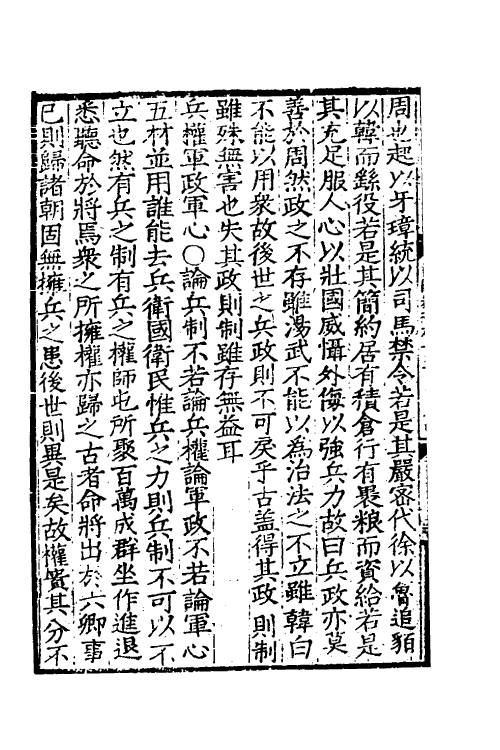 周也起以牙璋統以司馬禁令若是其嚴宻代徐以魯追貊
以韓而繇役若是其簡約居有積倉行有裹粮而資給若是
其充足服人心以壯國威懾外侮以強兵力故曰兵政亦莫
善於周然政之不存雖湯武不能以為治法之不立雖韓白
不能以用衆故後世之兵政則不可戾乎古盖得其政則制
雖殊無害也失其政則制雖存無益耳
兵權軍政軍心〇論兵制不若論兵權論軍政不若論軍心
五材並用誰能去兵衛國衛民惟兵之力則兵制不可以不
立也然有兵之制有兵之權師屯所聚百萬成群坐作進退
悉聽命於將焉衆之所擁權亦歸之古者命將出於六卿事
已則歸諸朝固無擁兵之患後世則異是矣故權貴其分不